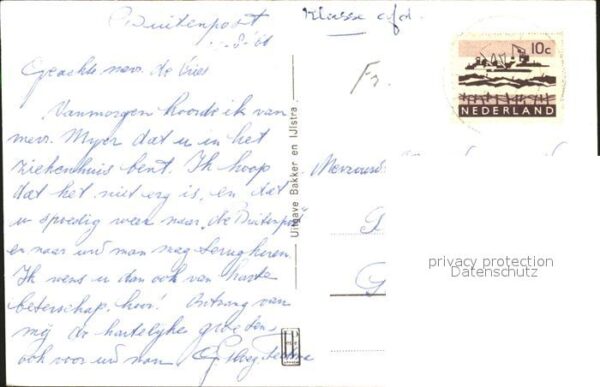 Buitenpost
Klasse afd.
Geachte mevr. de Vries
Fr.
10c
NEDERLAND
Vanmorgen hoorde ik van
mevr. Myer dat u in het
ziekenhuis bent. Ik hoop
dat het niet erg is, en dat
u spoedig weer naar "de Buitenpost
en naar uw man mag terugkeren.
Ik wens u dan ook van harte
beterschap, hoor! Ontvang van
mij de hartelijke groeten,
ook voor uw man.
Uitgave Bakker en IJlstra
Mevrouw
privacy protection
Datenschutz